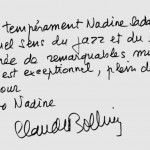 tempérament Nadine
uel sens du jazz et du
rée de remarquables mu
est exceptionnel, plein d
our
o Nadine
Claude Bolling